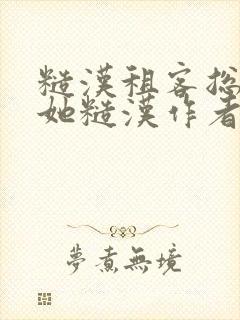 糙漢租客捴
她糙漢作者
夢煮無境